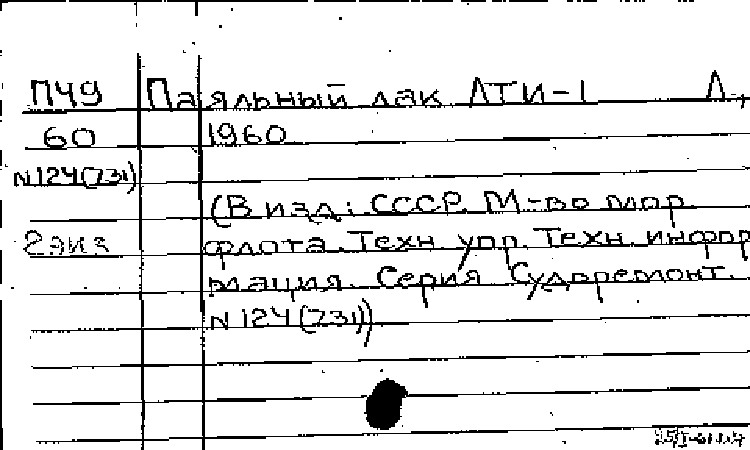 П49 Паяльный лак ЛТИ-1 Л.,
60 1960
N124(731)
(В изд: СССР. М-во мор.
2 экз флота. Техн. упр. Техн. инфор
мация. Серия Судоремонт.
N124(731))